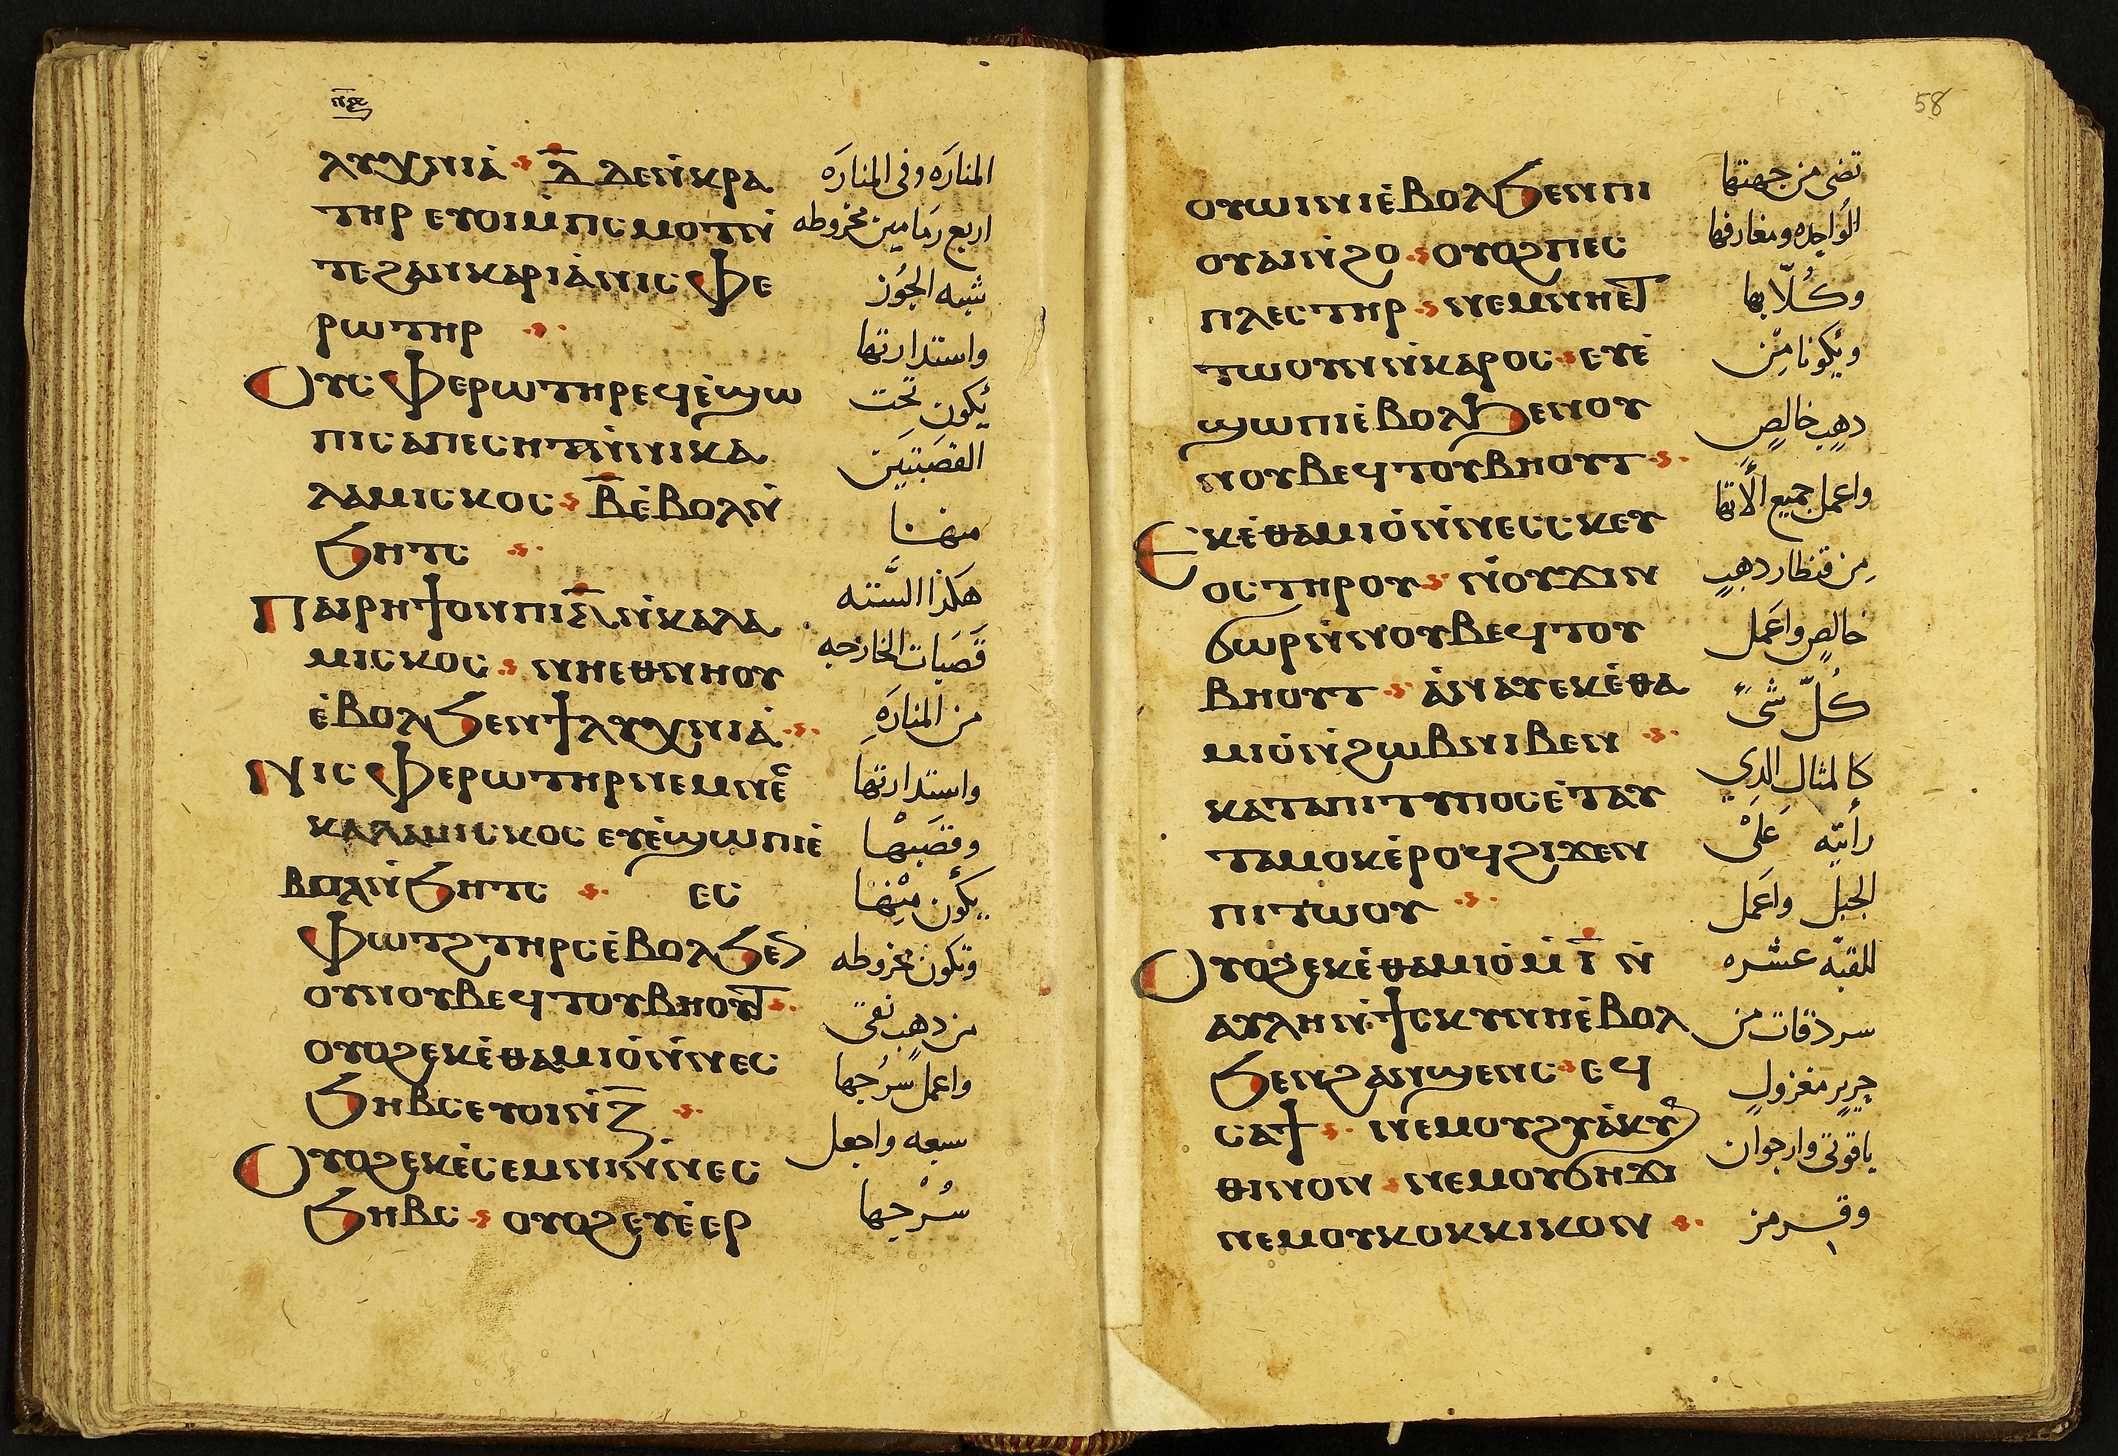 ⲛⲍ
ⲗⲩⲭⲛⲓⲁ̀ ⲇ̅ ⲇⲉⲛⲕ̀ⲣⲁ
ⲧⲏⲣ ⲉⲩⲟⲓⲙ̀ⲡⲥⲙⲟⲧⲛ̀
ⲧⲉϩⲁⲛⲕⲁⲣⲓⲁ̀ⲛⲓⲥⲫⲉ
ⲣⲱⲧⲏⲣ
ⲟⲩⲥⲫⲉⲣⲱⲧⲏⲣⲉϥⲉ̀ϣⲱ
ⲡⲓⲥⲁⲡⲉⲥⲏⲧⲛ̀ⲛⲓⲕⲁ
ⲗⲁⲙⲓⲥⲕⲟⲥ ⲃ̅ⲉ̀ⲃⲟⲗⲛ̀
ϧⲏⲧⲥ
ⲡⲁⲓⲣⲏϯⲟⲛⲡⲓⲋ̅ⲛ̀ⲕⲁⲗⲁ
ⲙⲓⲥⲕⲟⲥ ⲛⲏⲉⲑⲛⲏⲟⲩ
ⲉ̀ⲃⲟⲗϧⲉⲛϯⲗⲩⲭⲛⲓⲁ̀
ⲛⲓⲥⲫⲉⲣⲱⲧⲏⲣⲛⲉⲙⲛⲉ
ⲕⲁⲗⲁⲙⲓⲥⲕⲟⲥ ⲉⲩⲉ̀ϣⲱⲡⲓⲉ̀
ⲃⲟⲗⲛ̀ϧⲏⲧⲥ ⲉⲥ
ⲫⲱⲧϩⲧⲏⲣⲥⲉ̀ⲃⲟⲗϧⲉⲛ
ⲟⲩⲛⲟⲩⲃⲉϥⲧⲟⲩⲃⲏⲟⲩⲧ
ⲟⲩⲟϩⲉⲕⲉ̀ⲑⲁⲙⲓⲟ̀ⲛ̀ⲛⲉⲥ
ϧⲏⲃⲥⲉⲩⲟⲓⲛ̀ⲍ̅
ⲟⲩⲟϩⲉⲕⲉ̀ⲥⲉⲙⲛⲓⲛ̀ⲛⲉⲥ
ϧⲏⲃⲥ ⲟⲩⲟϩⲉⲩⲉ̀ⲉⲣ
المنارَه وفى المنارَه
اربع رَمامين مخروطه
شبه الجَوُز
واستدارتها
يَكون تحت
القصَبتيَن
منهنا
هَكذا السَّتته
قَصَبَات الخارجه
من المنارَهِ
واستدارتها
وقصَبتهْا
يَكَون مِنْهَا
وتكون مخروطه
من دهبٍ نقى
واعمل سُرجها
سبعه واجعل
سُرْجِها
58
ⲟⲩⲱⲓⲛⲓⲉ̀ⲃⲟⲗϧⲉⲛⲡⲓ
ⲟⲩⲁⲓⲛ̀ϩⲟ ⲟⲩⲟϩⲡⲉⲥ
ⲡⲗⲉⲥⲧⲏⲣ ⲛⲉⲙⲛⲏⲉⲧ
ⲧⲱⲟⲩⲛⲛ̀ⲕⲁⲣⲟⲥ ⲉⲩⲉ̀
ϣⲱⲡⲓⲉ̀ⲃⲟⲗϧⲉⲛⲟⲩ
ⲛⲟⲩⲃⲉϥⲧⲟⲩⲃⲏⲟⲩⲧ
ⲉⲕⲉ̀ⲑⲁⲙⲓⲟ̀ⲛ̀ⲛⲉⲥⲥⲕⲉⲩ
ⲟⲥⲧⲏⲣⲟⲩ ⲛ̀ⲟⲩϫⲓⲛ
ϭⲱⲣⲛ̀ⲛⲟⲩⲃⲉϥⲧⲟⲩ
ⲃⲏⲟⲩⲧ ⲁ̀ⲛⲁⲩⲉⲕⲉ̀ⲑⲁ
ⲙⲓⲟ̀ⲛ̀ϩⲱⲃⲛⲓⲃⲉⲛ
ⲕⲁⲧⲁⲡⲓⲧⲩⲡⲟⲥⲉ̀ⲧⲁⲩ
ⲧⲁⲙⲟⲕⲉ̀ⲣⲟϥϩⲓϫⲉⲛ
ⲡⲓⲧⲱⲟⲩ
ⲟⲩⲟϩⲉⲕⲉ̀ⲑⲁⲙⲓⲟ̀ⲙ̀ⲓ̅ ⲛ̀
ⲁⲩⲗⲏⲛ̀ϯⲥⲕⲩⲛⲏⲉ̀ⲃⲟⲗ
ϧⲉⲛϩⲁⲛϣⲉⲛⲥ ⲉϥ
ⲥⲁϯ ⲛⲉⲙⲟⲩϩⲩⲁ̀ⲕⲩⲛ
ⲑⲓⲛⲟⲛ ⲛⲉⲙⲟⲩϭⲏϫⲓ
ⲛⲉⲙⲟⲩⲕⲟⲕⲕⲓⲕⲟⲛ
تضى من جهتها
الوَاحِده ومغارفها
وكُلّابها
ويَكونا مِن
دهبٍ خالصٍ
واعمل جميع الَاتها
مِن قنطار دهبٍ
خالصٍ واعَمل
كُلّ شىً
كالمثالِ الدِى
رأَيته عَلَىْ
الجبَل واعَمَل
للقبّه عشره
سردقات من
حرِيرٍ مغزولٍ
ياقوتى وارجوان
وقرمز